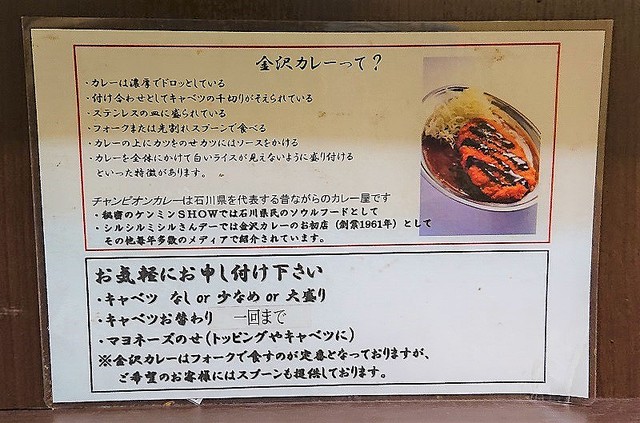 金沢カレーって？
・カレーは濃厚でドロッとしている
・付け合わせとしてキャベツの千切りがそえられている
・ステンレスの皿に盛られている
・フォークまたは先割れスプーンで食べる
・カレーの上にカツをのせカツにはソースをかける
・カレーを全体にかけて白いライスが見えないように盛り付ける
といった特徴があります。
チャンピオンカレーは石川県を代表する昔ながらのカレー屋です
・秘密のケンミンSHOWでは石川県民のソウルフードとして
・シルシルミシルさんデーでは金沢カレーのお初店（創業1961年）として
その他毎年多数のメディアで紹介されています。
お気軽にお申し付け下さい
・キャベツ なし or 少なめ or 大盛り
・キャベツお替わり 一回まで
・マヨネーズのせ（トッピングやキャベツに）
※金沢カレーはフォークで食すのが定番となっておりますが、
ご希望のお客様にはスプーンも提供しております。